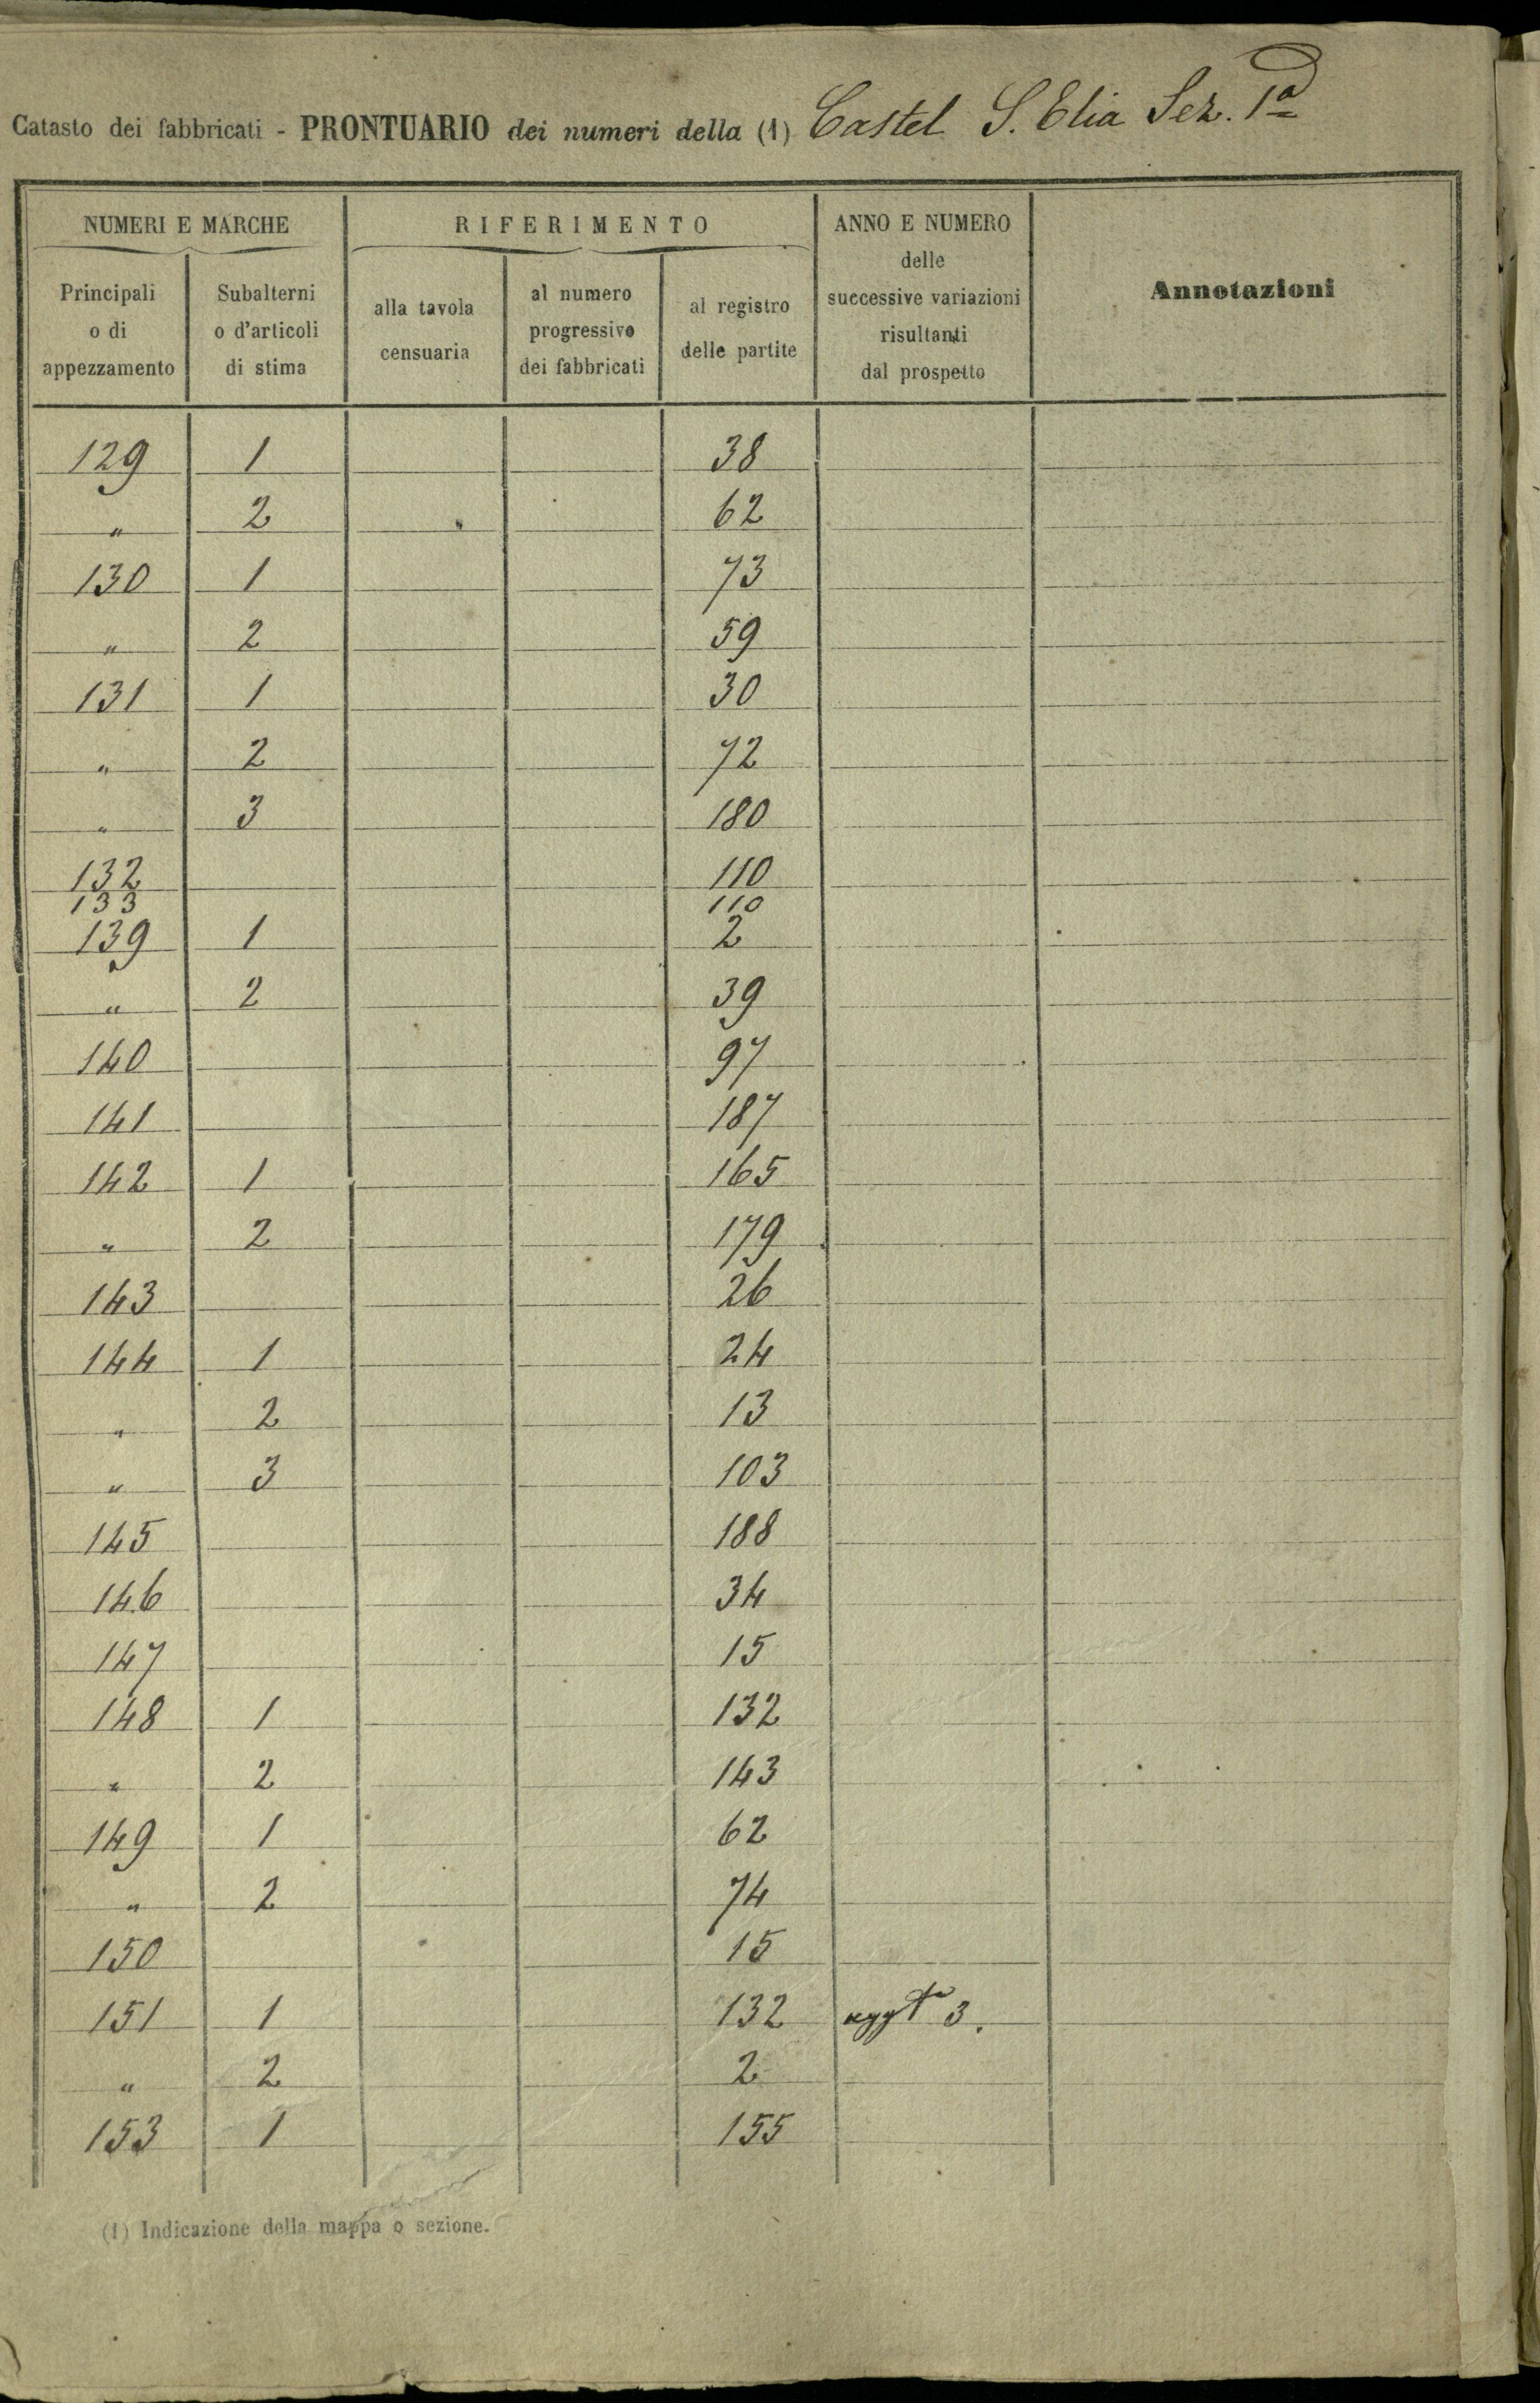 Catasto dei fabbricati - PRONTUARIO dei numeri della (1) Castel S. Elia Sez. 1ª
NUMERI E MARCHE
RIFERIMENTO
ANNO E NUMERO
delle
successive variazioni
risultanti
dal prospetto
Annotazioni
Principali
o di
appezzamento
Subalterni
o d'articoli
di stima
alla tavola
censuaria
al numero
progressivo
dei fabbricati
al registro
delle partite
129 1 38
" 2 62
130 1 73
" 2 59
131 1 30
" 2 72
" 3 180
132 110
133 110
139 1 2
" 2 39
140 97
141 187
142 1 165
" 2 179
143 26
144 1 24
" 2 13
" 3 103
145 188
146 34
147 15
148 1 132
" 2 143
149 1 62
" 2 74
150 15
151 1 132 3.
" 2 2
153 1 155
(1) Indicazione della mappa o sezione.